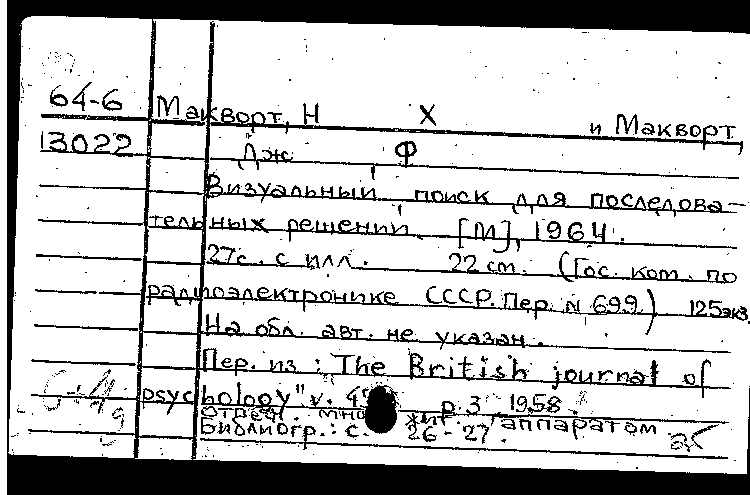 64-6 Макворт, Н Х и Макворт,
13022 Дж , Ф
Визуальный поиск для последова-
тельных решений. [М], 1964.
27с. с илл. 22 cm. (Гос. ком. по
радиоэлектронике СССР. Пер. N 699.) 125экз.
На обл. авт. не указан.
Пер. из: "The British journal of
psychology" v. p. 3, 1958.
аппаратом
Библиогр.: с. 26-27.